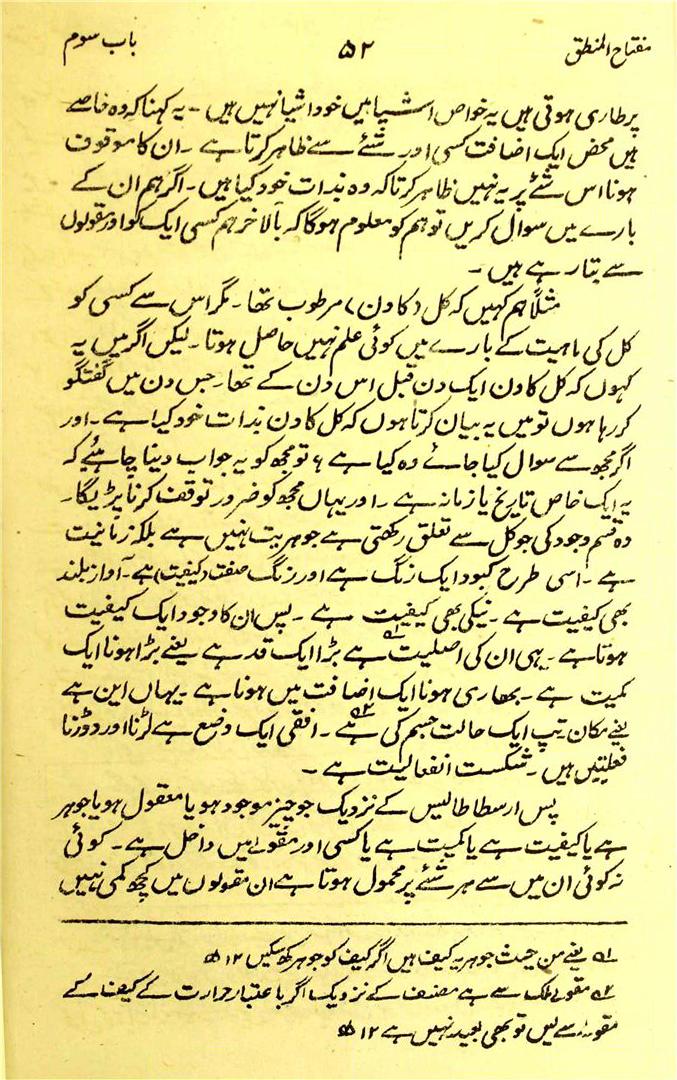 مفتاح المنطق ۵۲ باب سوم
پر طاری ہوتی ہیں یہ خواص اشیا میں خود اشیا نہیں ہیں ۔ یہ کہنا کہ وہ خاصے
ہیں محض ایک اضافت کسی اور شئے سے ظاہر کرتا ہے ۔ ان کا موقوف
ہونا اس شئے پر یہ نہیں ظاہر کرتا کہ وہ بذات خود کیا ہیں ۔ اگر ہم ان کے
بارے میں سوال کریں تو ہم کو معلوم ہوگا کہ بالآخر ہم کسی ایک کو اور مقولوں
سے بتا رہے ہیں ۔
مثلاً ہم کہیں کہ کل (کا دن) مرطوب تھا ۔ مگر اس سے کسی کو
کل کی ماہیت کے بارے میں کوئی علم نہیں حاصل ہوتا ۔ لیکن اگر میں یہ
کہوں کہ کل کا دن ایک دن قبل اس دن کے تھا ۔ جس دن میں گفتگو
کر رہا ہوں تو میں یہ بیان کرتا ہوں کہ کل کا دن بذات خود کیا ہے ۔ اور
اگر مجھ سے سوال کیا جائے وہ کیا ہے ؟ تو مجھ کو یہ جواب دینا چاہئیے کہ
یہ ایک خاص تاریخ یا زمانہ ہے ۔ اور یہاں مجھ کو ضرور توقف کرنا پڑیگا ۔
وہ قسم وجود کی جو کل سے تعلق رکھتی ہے جوہریت نہیں ہے بلکہ زمانیت
ہے ۔ اسی طرح کبود ایک رنگ ہے اور رنگ صفت (کیفیت) ہے ۔ آواز بلند
بھی کیفیت ہے ۔ نیکی بھی کیفیت ہے ۔ پس ان کا وجود ایک کیفیت
ہوتا ہے ۔ یہی ان کی اصلیت ہے۱ بڑا ایک قدر ہے یعنے بڑا ہونا ایک
کمیت ہے ۔ بھاری ہونا ایک اضافت میں ہونا ہے ۔ یہاں این ہے
یعنے مکان تپ ایک حالت جسم کی ہے۲ ۔ افقی ایک وضع ہے لڑنا اور دوڑنا
فعلیتیں ہیں ۔ شکست انفعالیت ہے ۔
پس ارسطاطالیس کے نزدیک جو چیز موجود ہو یا معقول ہو یا جوہر
ہے یا کیفیت ہے یا کمیت ہے یا کسی اور مقولہ میں داخل ہے ۔ کوئی
نہ کوئی ان میں سے ہر شئے پر محمول ہوتا ہے ان مقولوں میں کچھ کمی نہیں
۱ یعنے من حیث جوہر یہ کیف ہیں اگر کیف کو جوہر کہہ سکیں ۱۲
۲ مقولہ ملک سے ہے مصنف کے نزدیک اگر باعتبار حرارت کے کیف کے
مقولہ سے لیں تو بھی بعید نہیں ہے ۱۲